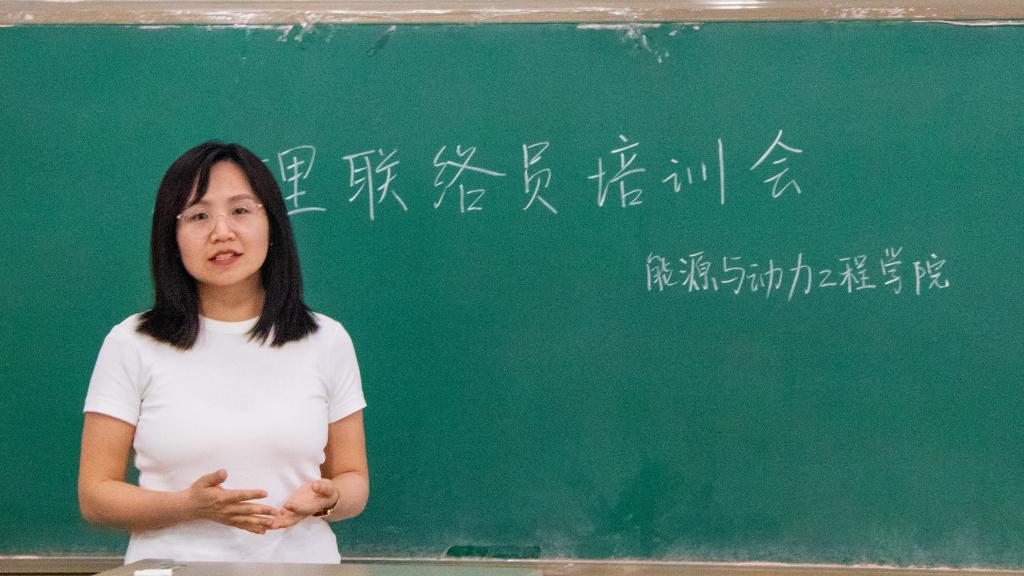 理联络员培训会
能源与动力工程学院